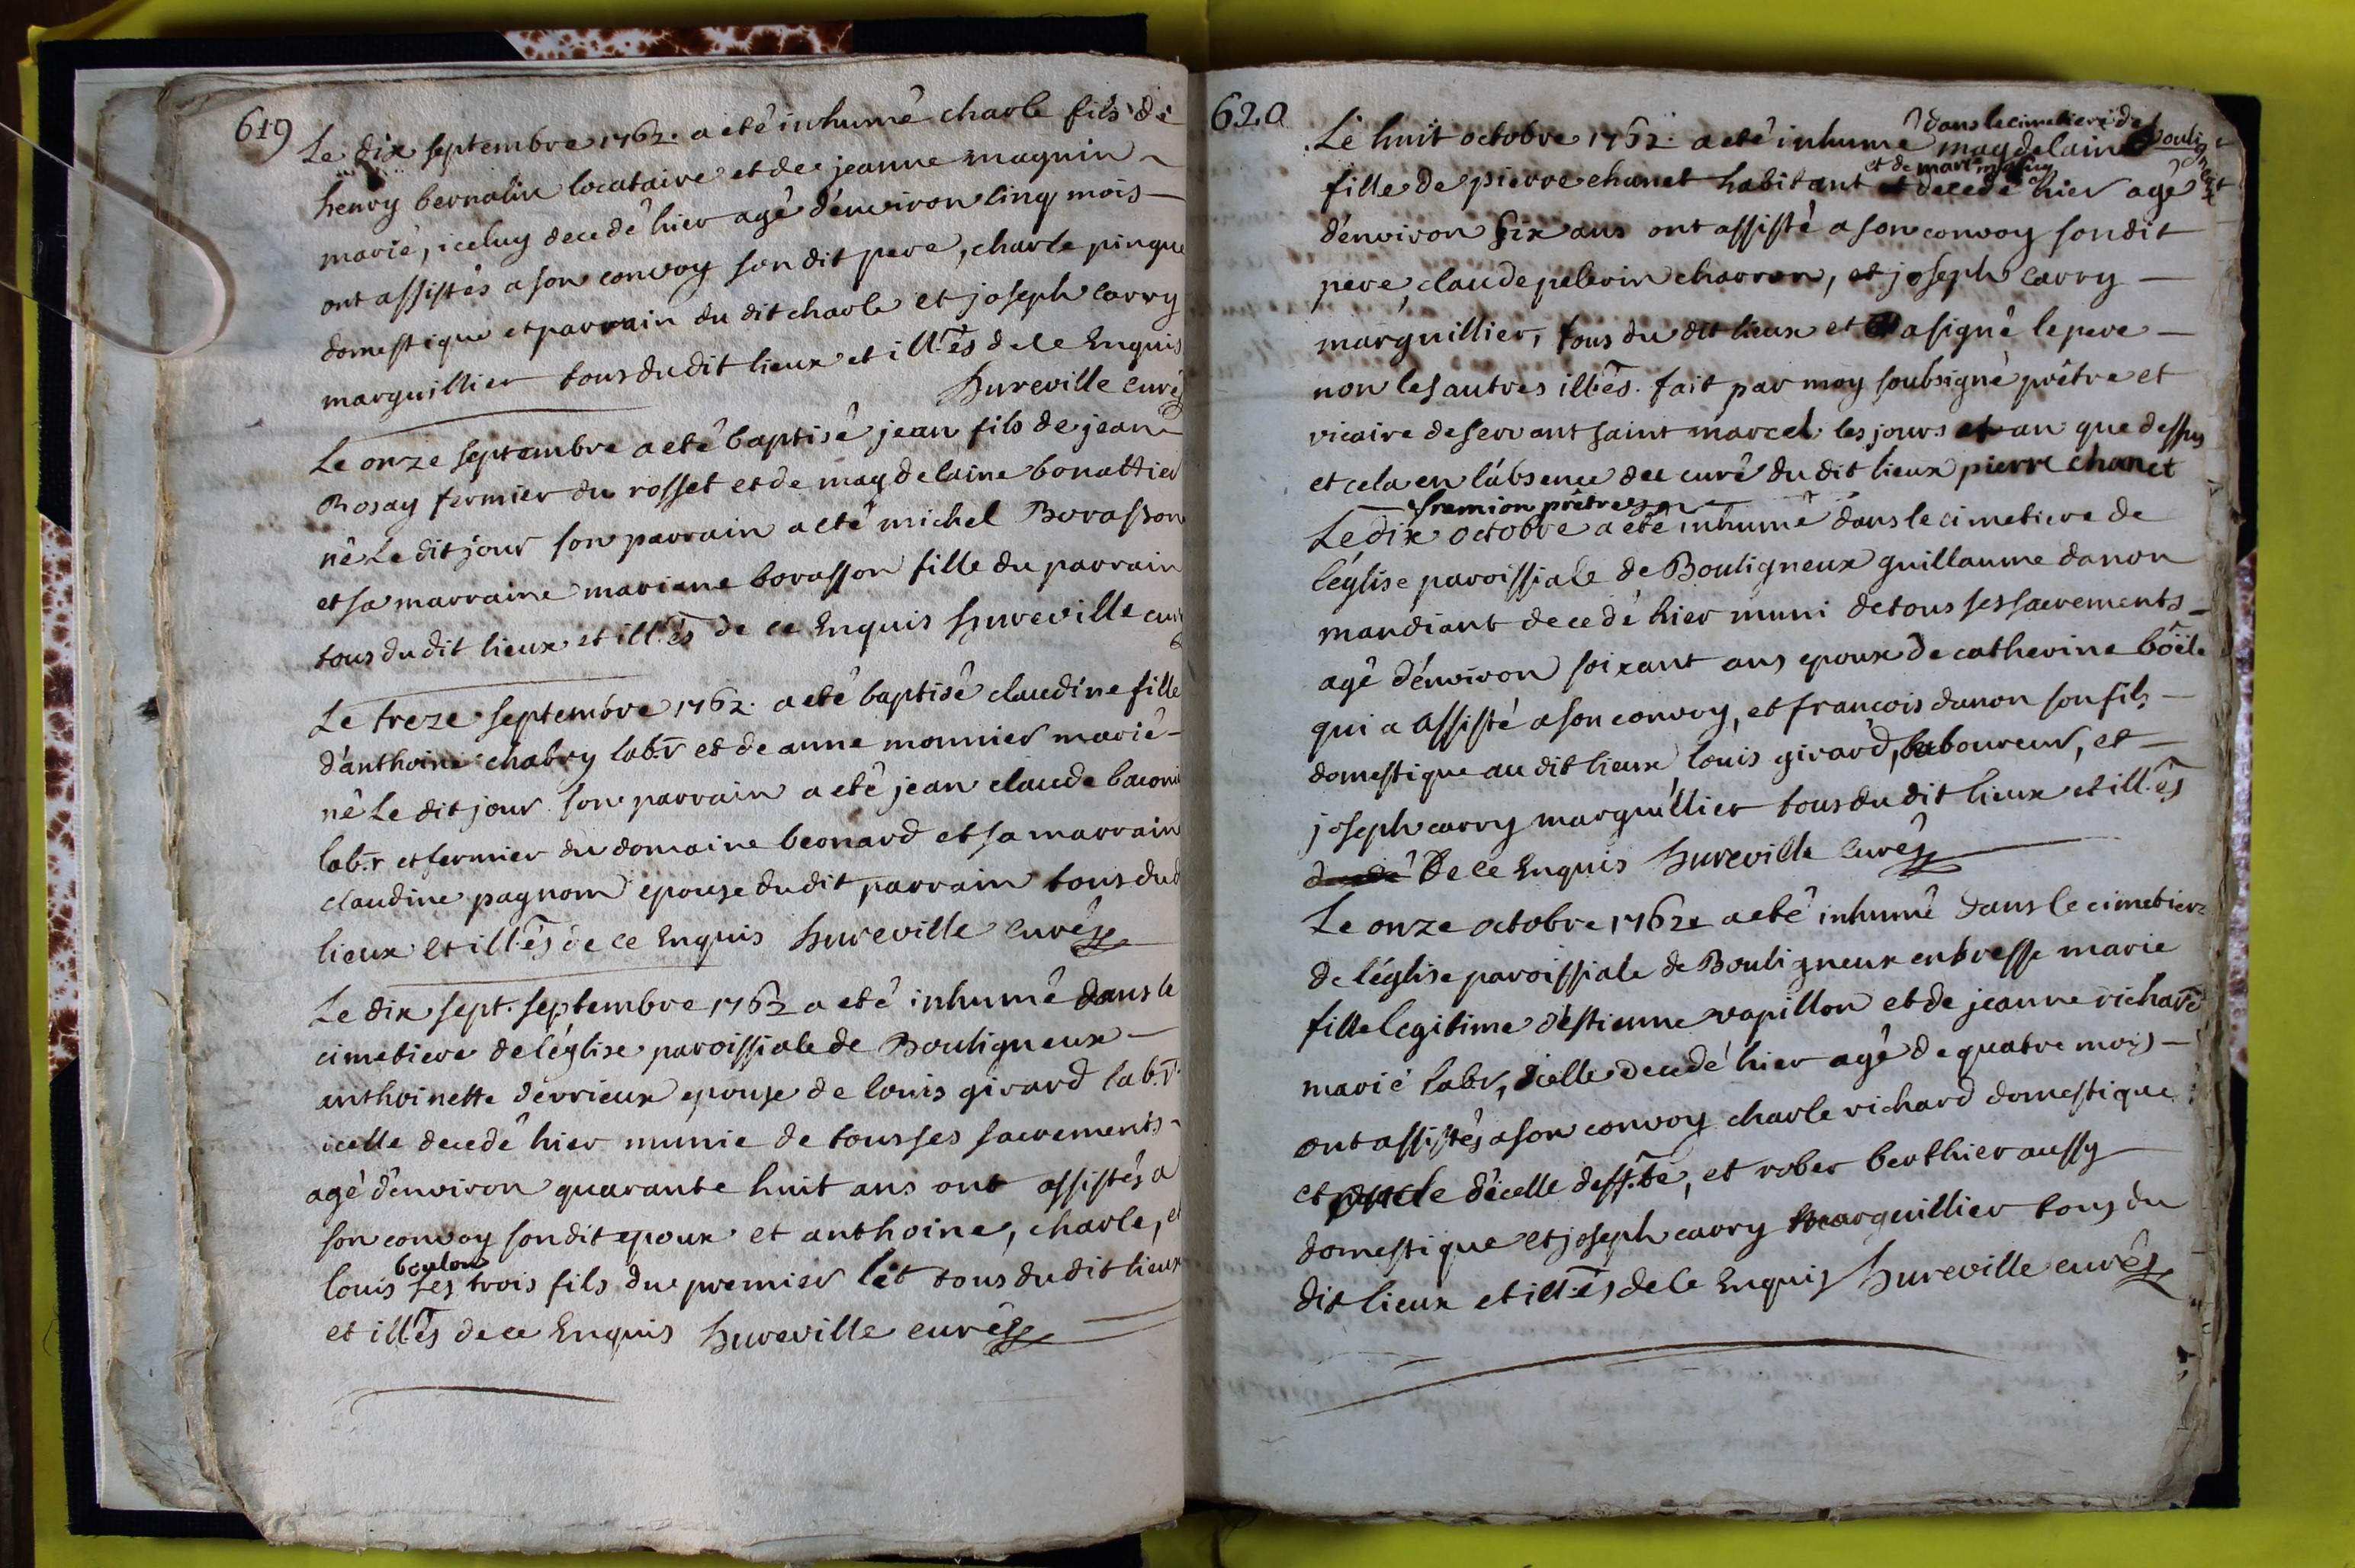 619
Le dix septembre 1762. a eté inhumé charle fils de
henry bernalin locataire et de jeanne magnin
marié, iceluy decedé hier agé d'environ cinq mois
ont assistés a son convoy son dit pere, charle pingue
domestique et parrain du dit charle et joseph carry
marguillier tous du dit lieux et ill.és de ce Enquis
hureville curé
Le onze septembre a eté baptisé jean fils de jean
Rosay fermier du rosset et de magdelaine bonattier
né Le dit jour son parrain a eté michel Borasson
et sa marraine mariane borasson fille du parrain
tous du dit lieux et ill.és de ce Enquis hureville curé
Le treze septembre 1762. a eté baptisé claudine fille
d'anthoine chabry lab.r et de anne monnier marié
né Le dit jour son parrain a eté jean claude baconi
lab.r et fermier du domaine beonard et sa marrain
claudine pagnom epouse du dit parrain tous dud
lieux et ill.és de ce Enquis hureville curé
Le dix sept. septembre 1762 a eté inhumé dans le
cimetiere de léglise paroissiale de Bouligneux
anthoinette derrieux epouse de louis girard lab.r
icelle decedé hier munie de tous ses sacrements
agé d'environ quarante huit ans ont assistés a
son convoy son dit epoux et anthoine, charle, et
boulon
louis ses trois fils du premier lit tous du dit lieux
et ill.és de ce Enquis hureville curé
620
dans le cimetiere de Bouligneux
Le huit octobre 1762. a eté inhume magdelaine
et de marie
fille de pierre chanet habitant decedé hier agé
d'environ six ans ont assisté a son convoy son dit
pere, claude pelerin charron, et joseph carry
marguillier, tous du dit lieux et a signé le pere
non les autres ill.és. fait par moy soubsigné prêtre et
vicaire deservant saint marcel les jours et an que dessus
et cela en l'absence du curé du dit lieux pierre chanet
framion prêtre
Le dix octobre a eté inhumé dans le cimetiere de
léglise paroissiale de Bouligneux guillaume danon
mandiant decedé hier muni de tous ses sacrements
agé d'environ soixant ans epoux de catherine böële
qui a assisté a son convoy, et francois danon son fils
domestique au dit lieux louis girard, laboureur, et
joseph carry marguillier tous du dit lieux et ill.és
de ce Enquis hureville curé
Le onze octobre 1762 a eté inhumé dans le cimetiere
de léglise paroissiale de Bouligneux en bresse marie
fille legitime d'estienne vapillon et de jeanne richard
marié labr, icelle decedé hier agé de quatre mois
ont assistés a son convoy charle richard domestique
et oncle d'icelle deff.te, et rober berthier aussy
domestique et joseph carry marguillier tous du
dit lieux et ill.és de ce Enquis hureville curé